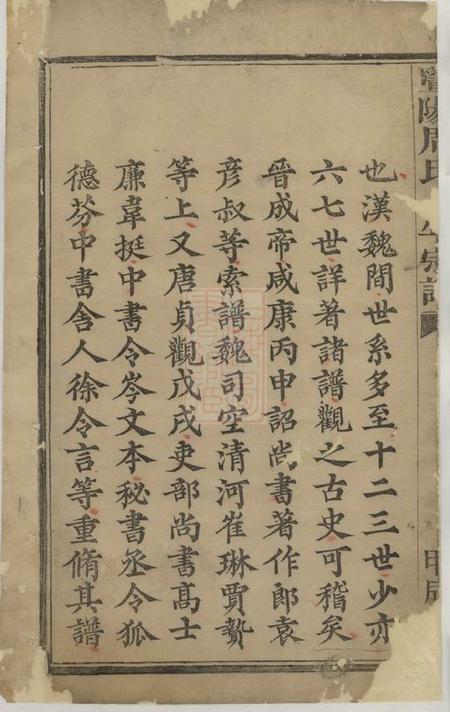 暨陽周氏宗譜
也漢魏間世系多至十二三世少亦
六七世詳著諸譜觀之古史可稽矣
晉成帝咸康丙申詔尚書著作郎袁
彦叔等索譜魏司空清河崔琳賈贄
等上又唐貞觀戊戌吏部尚書髙士
廉韋挺中書令岑文本秘書丞令狐
德芬中書舍人徐令言等重脩其譜